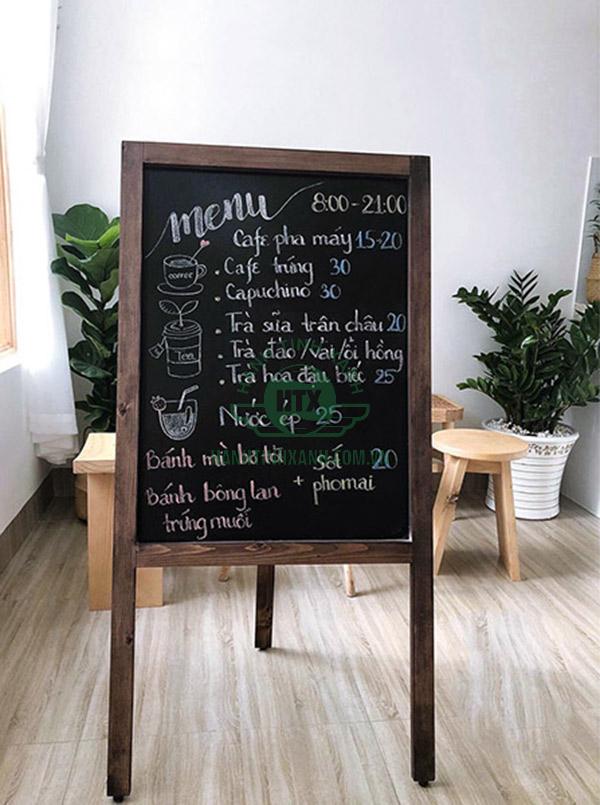 menu 8:00 - 21:00
Cafe pha máy 15-20
. Cafe trứng 30
. Capuchino 30
. Trà sữa trân châu 20
. Trà đào /vải/ổi hồng
. Trà hoa đậu biếc 25
Nước ép 25
Bánh mì bơ tỏi
Bánh bông lan
trứng muối
+ Sốt 20
phomai
COFFEE
Tea
HTX